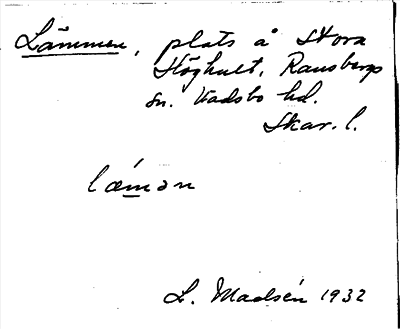 Lämmen, plats å Stora
Höghult, Ransbergs
sn. Vadsbo hd.
Skar. l.
lǽmən
L. Madsén 1932